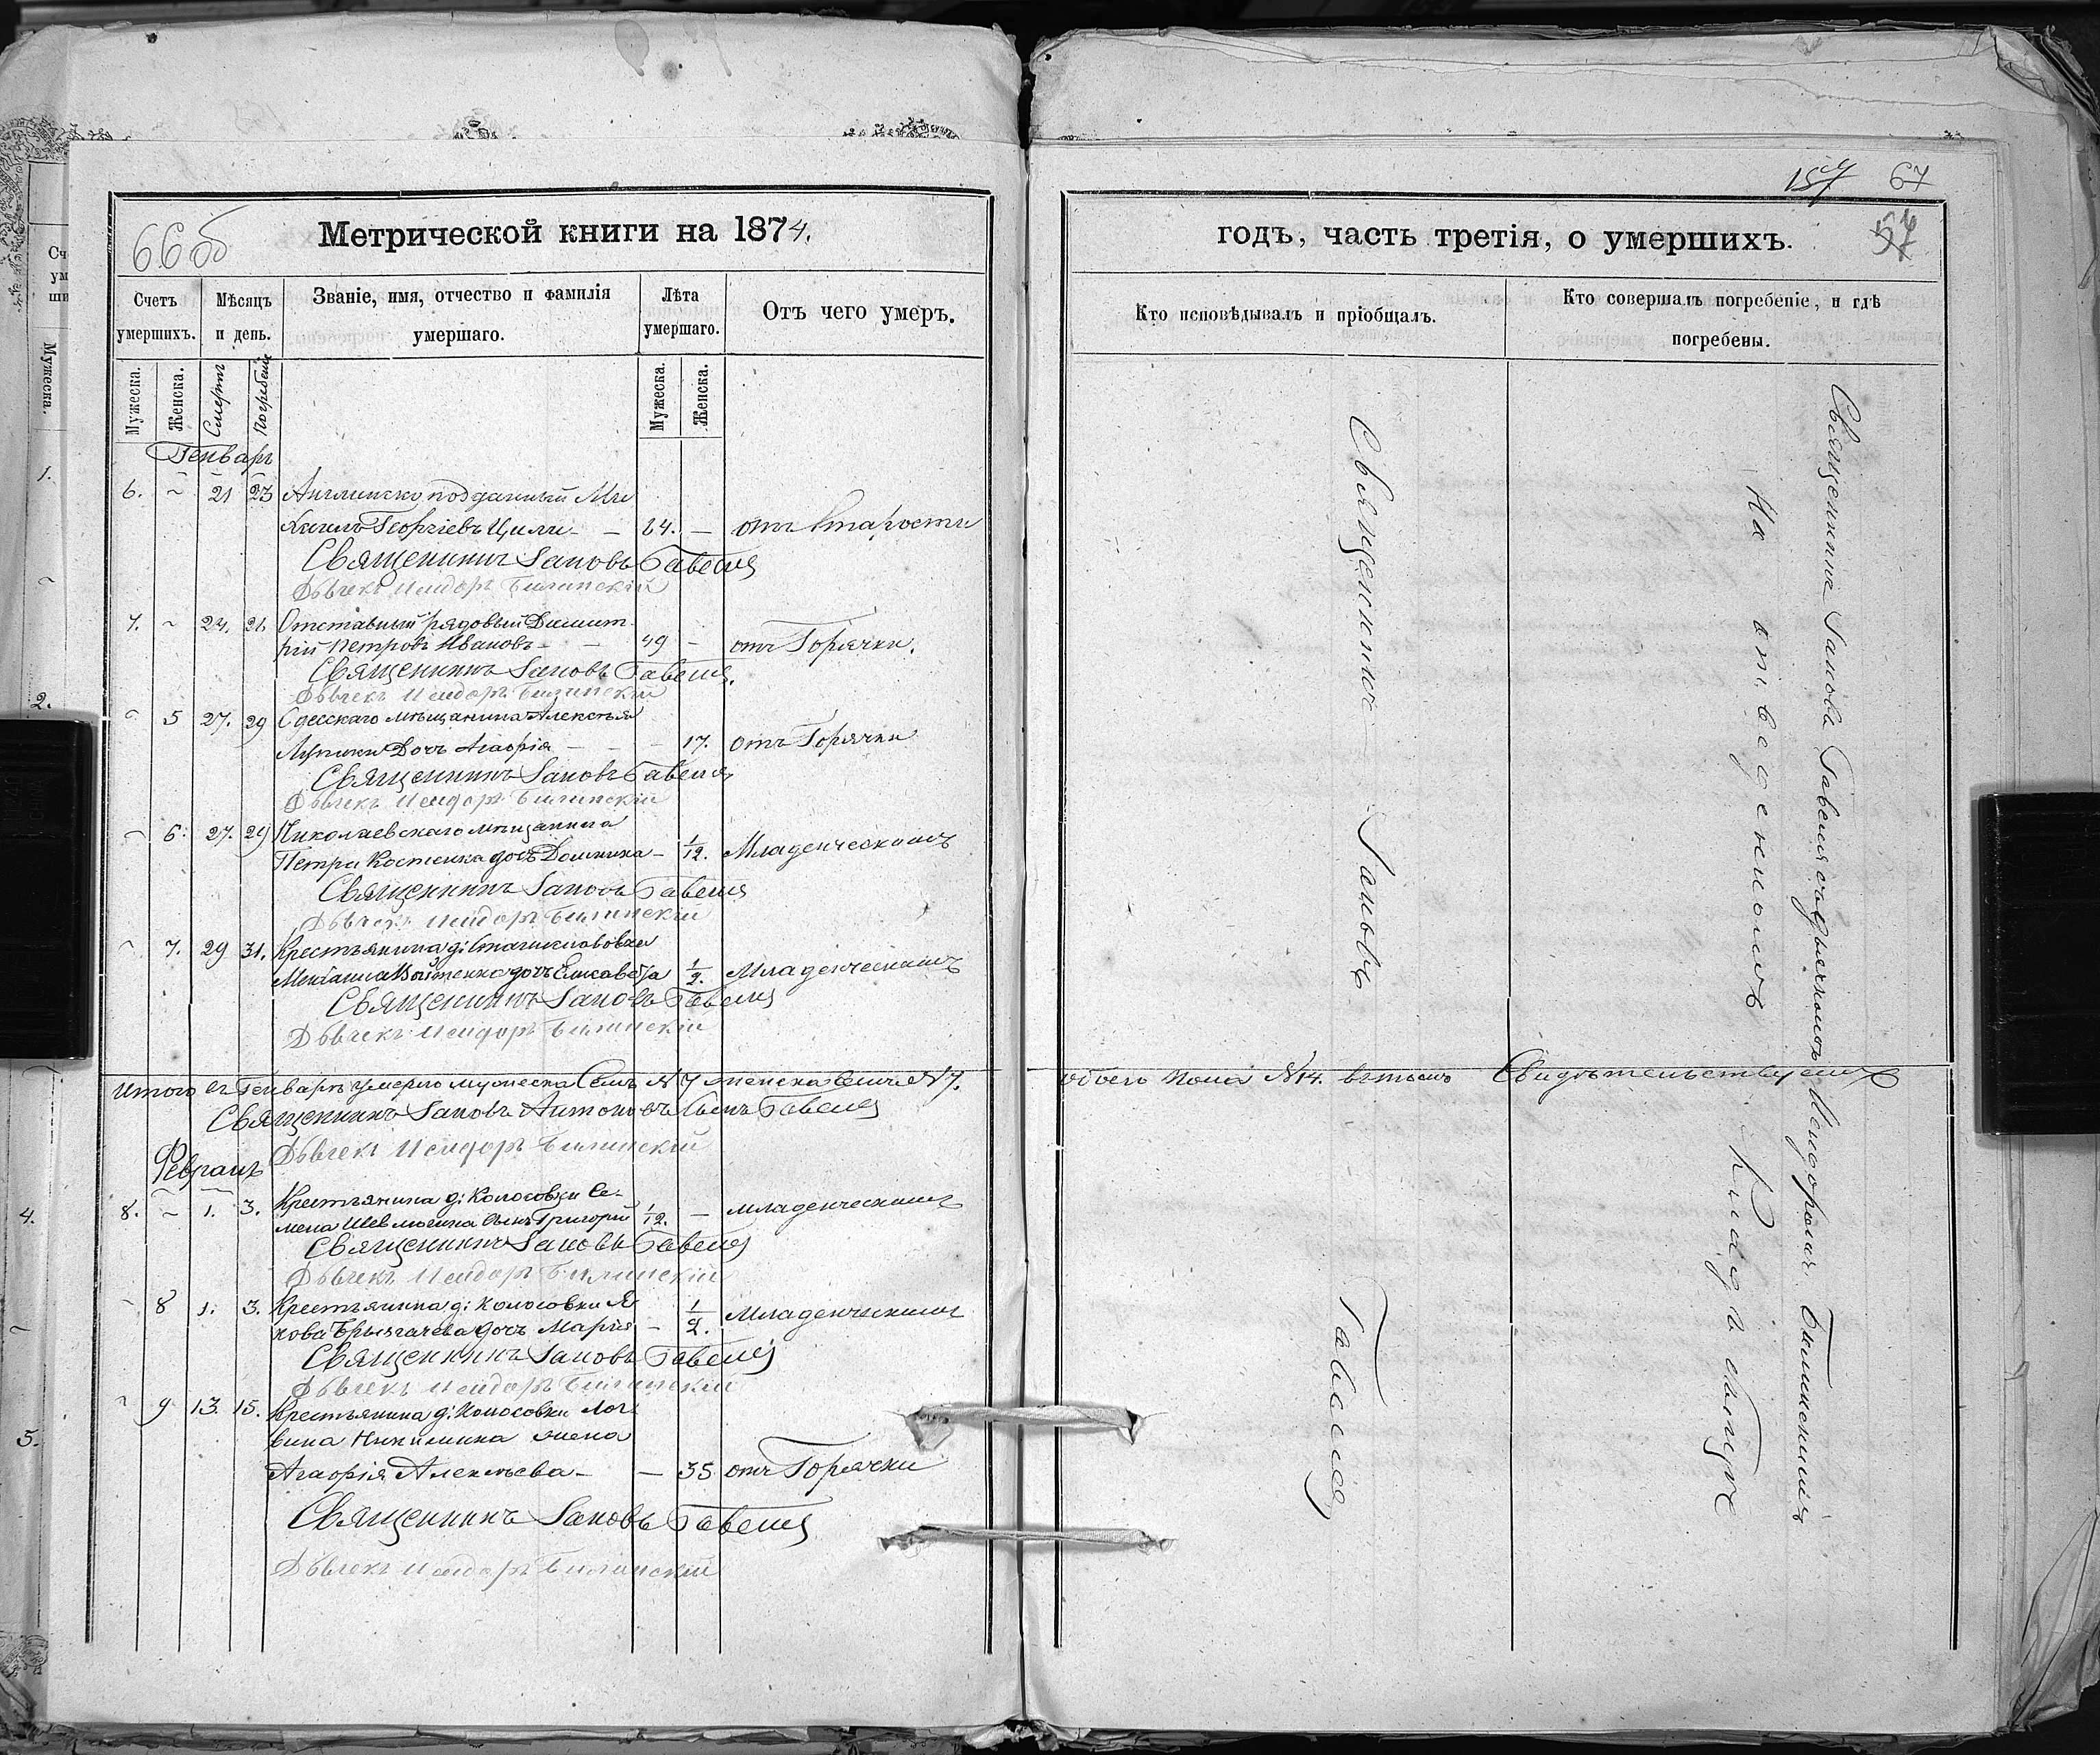 66 об
Метрической книги на 1874.
Счетъ умершихъ.
Мѣсяцъ и день.
Званіе, имя, отчество и фамилія умершаго.
Лѣта умершаго.
Отъ чего умеръ.
Мужеска.
Женска.
Смерти
Погребен.
Мужеска.
Женска.
Генварь
6. – 21 23 Англинско подданный Ми
хаилъ Георгіевъ – 24. – отъ Старости
Священникъ Іаковъ Гавеля
Дьячекъ Исидоръ Билинскій
7. – 24. Отставный рядовый Димит
рій Петровъ Ивановъ – 49 – отъ Горячки.
Священникъ Іаковъ Гавеля.
Дьячекъ Исидоръ Билинскій
– 5 27. 29 Одесскаго мѣщанина Алексѣя
дочь Агафія – – – 17. отъ Горячки
Священникъ Іаковъ Гавеля
Дьячекъ Исидоръ Билинскій
– 6. 27. 29 Николаевскаго мѣщанина
Петра Костенка дочь Домника – 1/12. Младенческимъ
Священникъ Іаковъ Гавеля
Дьячекъ Исидоръ Билинскій
– 7. 29 31. Крестьянина д: Станиславовки
дочь Елисавета 1/2. Младенческимъ
Священникъ Іаковъ Гавеля
Дьячекъ Исидоръ Билинскій
Итого въ Генварѣ умерло мужеска Семь № 7 женска семь № 7.
Священникъ Іаковъ Антоновъ Сынъ Гавеля
Дьячекъ Исидоръ Билинскій
Февраль
8. – 1. 3. Крестьянина д: Колосовки Се-
мена сынъ Григорій 1/12. – младенческимъ
Священникъ Іаковъ Гавеля
Дьячекъ Исидоръ Билинскій
– 8 1. 3. Крестьянина д: Колосовки Я
кова дочь Марія – 1/2. Младенческимъ
Священникъ Іаковъ Гавеля
Дьячекъ Исидоръ Билинскій
– 9 13. 15. Крестьянина д: Колосовки Лог
вина жена
Агафія Алексѣева – – 35 отъ Горячки
Священникъ Іаковъ Гавеля
Дьячекъ Исидоръ Билинскій
67
годъ, часть третія, о умершихъ.
57
Кто исповѣдывалъ и пріобщалъ.
Кто совершалъ погребеніе, и гдѣ погребены.
Священникъ Іаковъ Гавеля
Священникъ Іаковъ Гавеля съ дьячкомъ Исидоромъ Билинскимъ
На отведенномъ Кладбищѣ
обоего пола № 14. въ томъ Свидѣтельствуемъ
Сч
ум
ши
Мужеска.
1.
2.
4.
5.